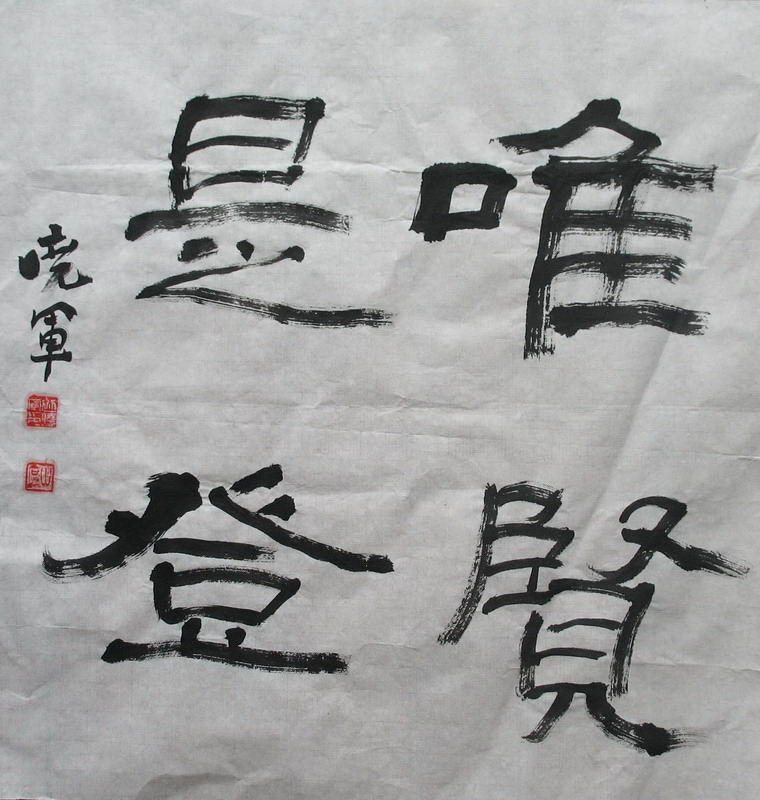 唯賢
是登
曉軍